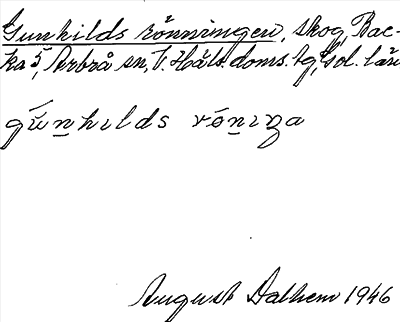 Gunhilds rönningen, skog, Bac-
ka 5, Arbrå sn, V. Häls. doms. tg, Gvl. län
gúnhilds rȯ́niŋa
August Dalhem 1946